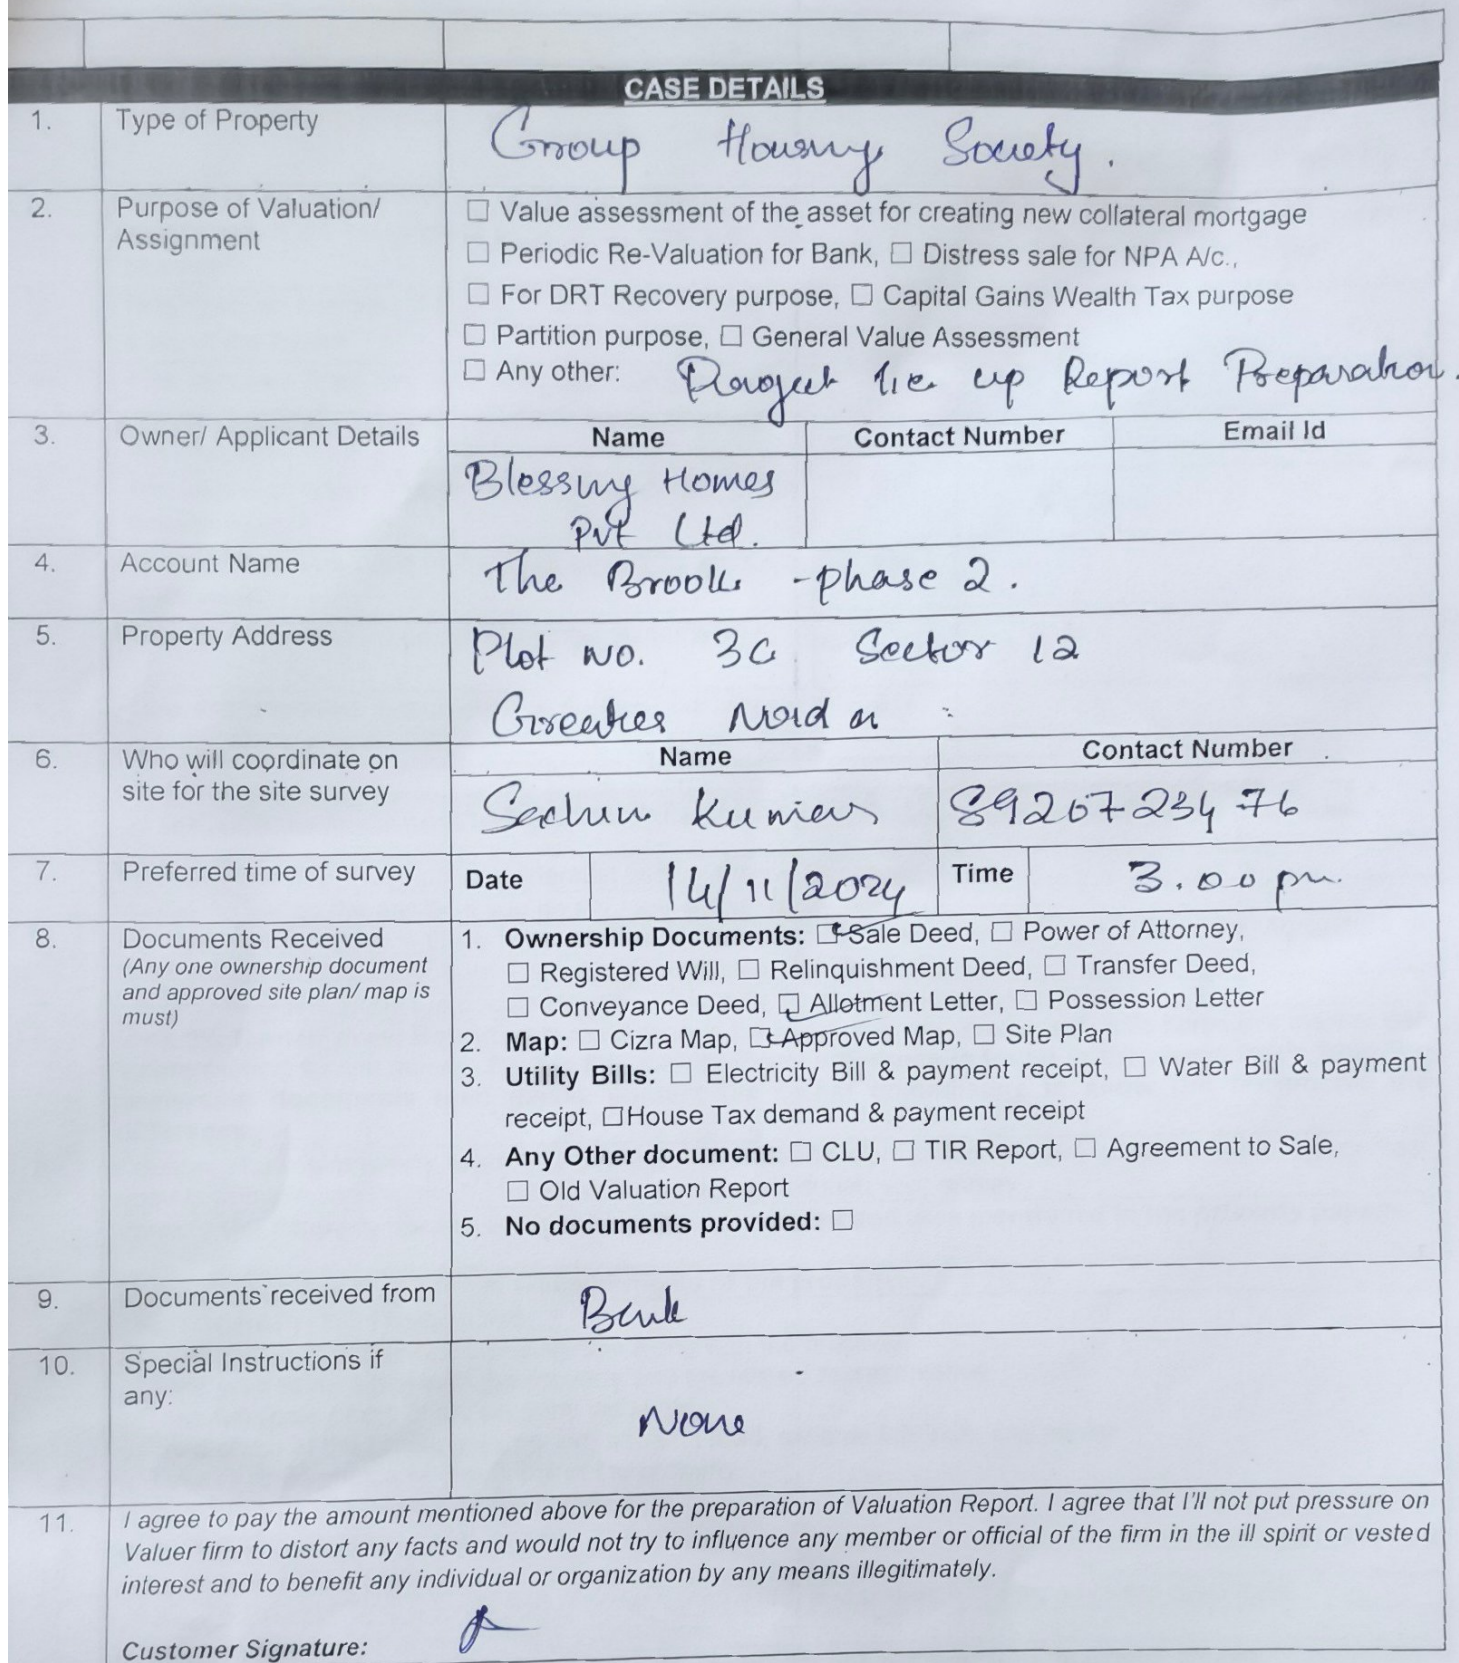 CASE DETAILS
1. Type of Property Group Housing Society.
2. Purpose of Valuation/ Assignment
☐ Value assessment of the asset for creating new collateral mortgage
☐ Periodic Re-Valuation for Bank, ☐ Distress sale for NPA A/c.,
☐ For DRT Recovery purpose, ☐ Capital Gains Wealth Tax purpose
☐ Partition purpose, ☐ General Value Assessment
☐ Any other: Project tie up Report Preparation.
3. Owner/ Applicant Details Name Contact Number Email Id
Blessing Homes
Pvt Ltd.
4. Account Name The Brook -phase 2.
5. Property Address Plot no. 3C Sector 12
Greater Noida
6. Who will coordinate on site for the site survey Name Contact Number
Sachin Kumar 8920723476
7. Preferred time of survey Date 14/11/2024 Time 3.00 pm.
8. Documents Received
(Any one ownership document
and approved site plan/ map is
must)
1. Ownership Documents: ☑ Sale Deed, ☐ Power of Attorney,
☐ Registered Will, ☐ Relinquishment Deed, ☐ Transfer Deed,
☐ Conveyance Deed, ☑ Allotment Letter, ☐ Possession Letter
2. Map: ☐ Cizra Map, ☑ Approved Map, ☐ Site Plan
3. Utility Bills: ☐ Electricity Bill & payment receipt, ☐ Water Bill & payment
receipt, ☐House Tax demand & payment receipt
4. Any Other document: ☐ CLU, ☐ TIR Report, ☐ Agreement to Sale,
☐ Old Valuation Report
5. No documents provided: ☐
9. Documents received from Bank
10. Special Instructions if
any:
None
11. I agree to pay the amount mentioned above for the preparation of Valuation Report. I agree that I'll not put pressure on
Valuer firm to distort any facts and would not try to influence any member or official of the firm in the ill spirit or vested
interest and to benefit any individual or organization by any means illegitimately.
Customer Signature: